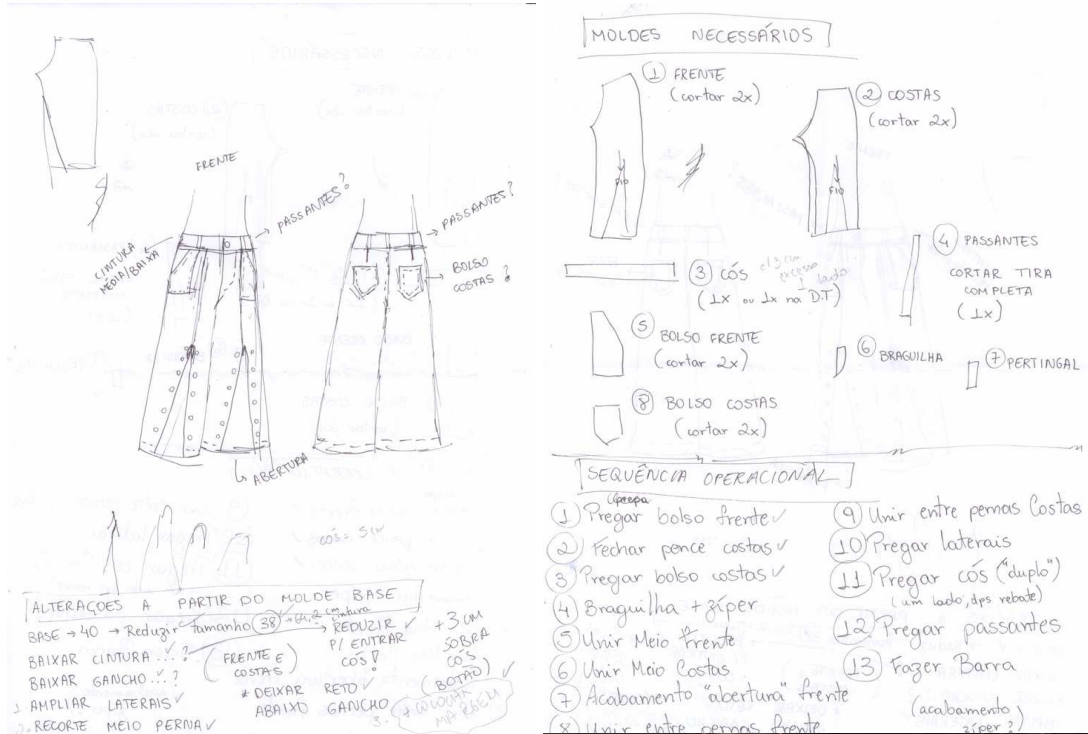 FRENTE
PASSANTES?
CINTURA
MÉDIA/BAIXA
ABERTURA
PASSANTES?
BOLSO
COSTAS?
CÓS = 5cm
ALTERAÇOES A PARTIR DO MOLDE BASE
BASE → 40 → Reduzir tamanho 38
cintura
BAIXAR CINTURA...?
BAIXAR GANCHO...?
1. AMPLIAR LATERAIS
2. RECORTE MEIO PERNA
FRENTE E
COSTAS
REDUZIR
P/ ENTRAR
CÓS!
* DEIXAR RETO
ABAIXO GANCHO
+3 CM
SOBRA
CÓS
(BOTÃO)
3. * COLOCAR
MARGEM
MOLDES NECESSÁRIOS
1 FRENTE
(cortar 2x)
FIO
2 COSTAS
(cortar 2x)
FIO
3 CÓS
(1x ou 1x na D.T)
c/ 3 cm
excesso
1 lado
4 PASSANTES
CORTAR TIRA
COMPLETA
(1x)
5 BOLSO FRENTE
(cortar 2x)
6 BRAGUILHA
7 PERTINGAL
8 BOLSO COSTAS
(cortar 2x)
SEQUÊNCIA OPERACIONAL
1 Pregar bolso frente
2 Fechar pence costas
3 Pregar bolso costas
4 Braguilha + zíper
5 Unir Meio Frente
6 Unir Meio Costas
7 Acabamento "abertura" frente
8 Unir entre pernas frente
9 Unir entre pernas Costas
10 Pregar laterais
11 Pregar cós ("duplo")
(um lado, dps rebate)
12 Pregar passantes
13 Fazer Barra
(acabamento
zíper?)